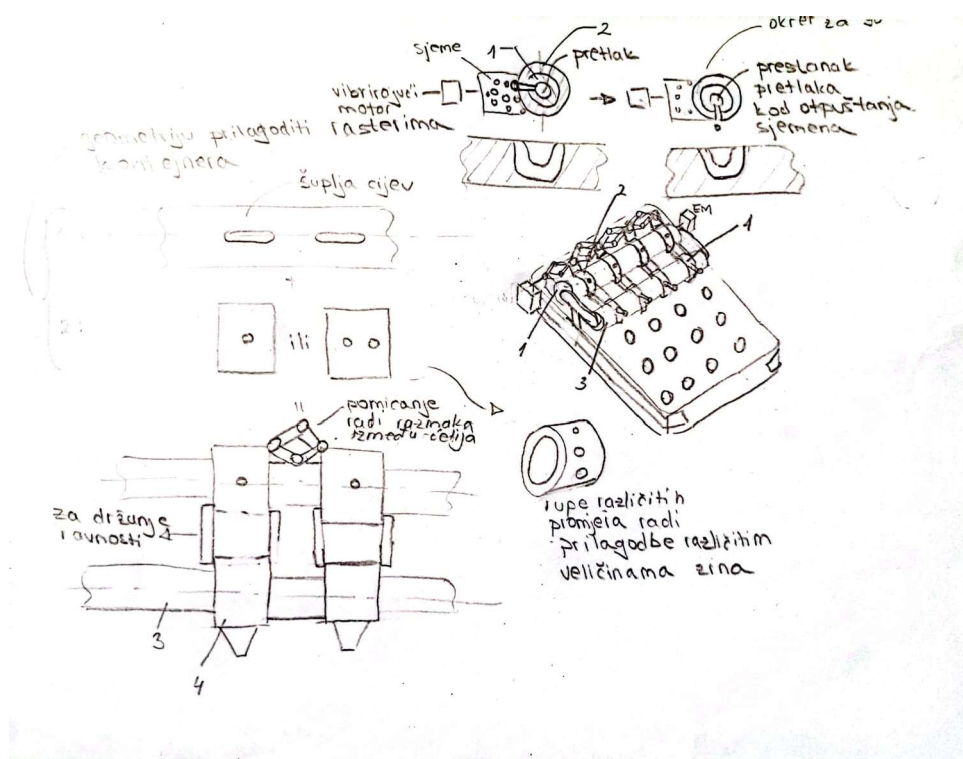 okret za
sjeme
1
2
pretlak
vibrirajući
motor
prestanak
pretlaka
kod otpuštanja
sjemena
geometriju prilagoditi rasterima
kontejnera
šuplja cijev
2
EM
1
1
3
2:
ili
pomicanje
radi razmaka
između ćelija
za držanje
ravnosti
rupe različitih
promjera radi
prilagodbe različitim
veličinama zrna
3
4